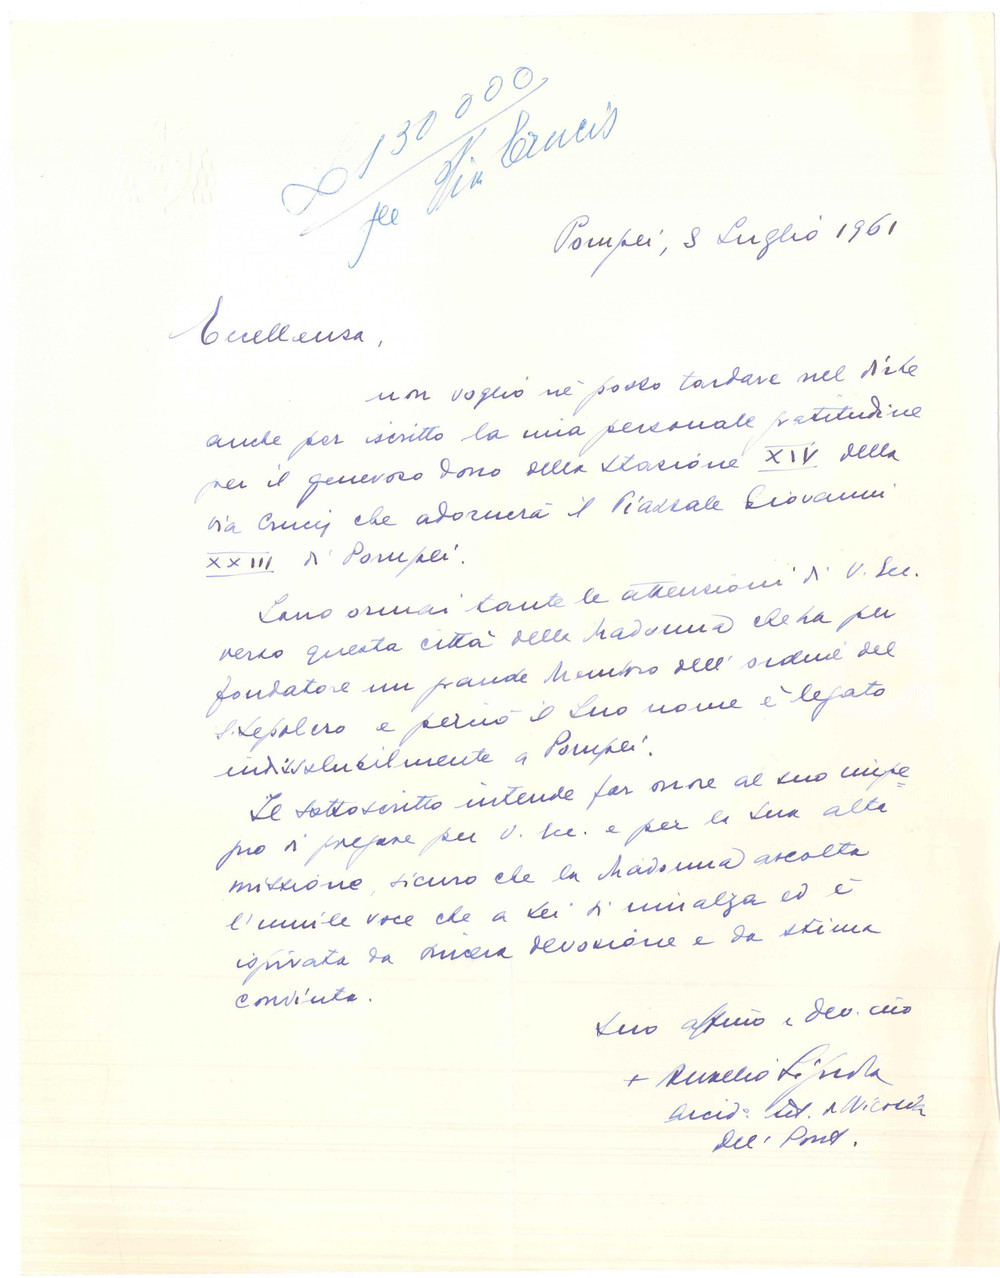 130 000
per Via Crucis
Pompei, 3 Luglio 1961
Eccellenza,
non voglio nè posso tardare nel dirLe
anche per iscritto la mia personale gratitudine
per il generoso dono della stazione XIV della
Via Crucis che adornerà il Piazzale Giovanni
XXIII di Pompei.
Sono ormai tante le attenzioni di V. Ecc.
verso questa città della Madonna che ha per
fondatore un grande Membro dell'ordine del
S. Sepolcro e perciò il Suo nome è legato
indissolubilmente a Pompei.
Il sottoscritto intende far onore al suo impe=
gno di pregare per V. Ecc. e per la Sua alta
missione, sicuro che la Madonna ascolta
l'umile voce che a Lei si innalza ed è
ispirata da sincera devozione e da stima
convinta.
Suo aff.mo e dev.mo
+ Aurelio Signora
Arciv. tit. di Nicosia
Del. Pont.